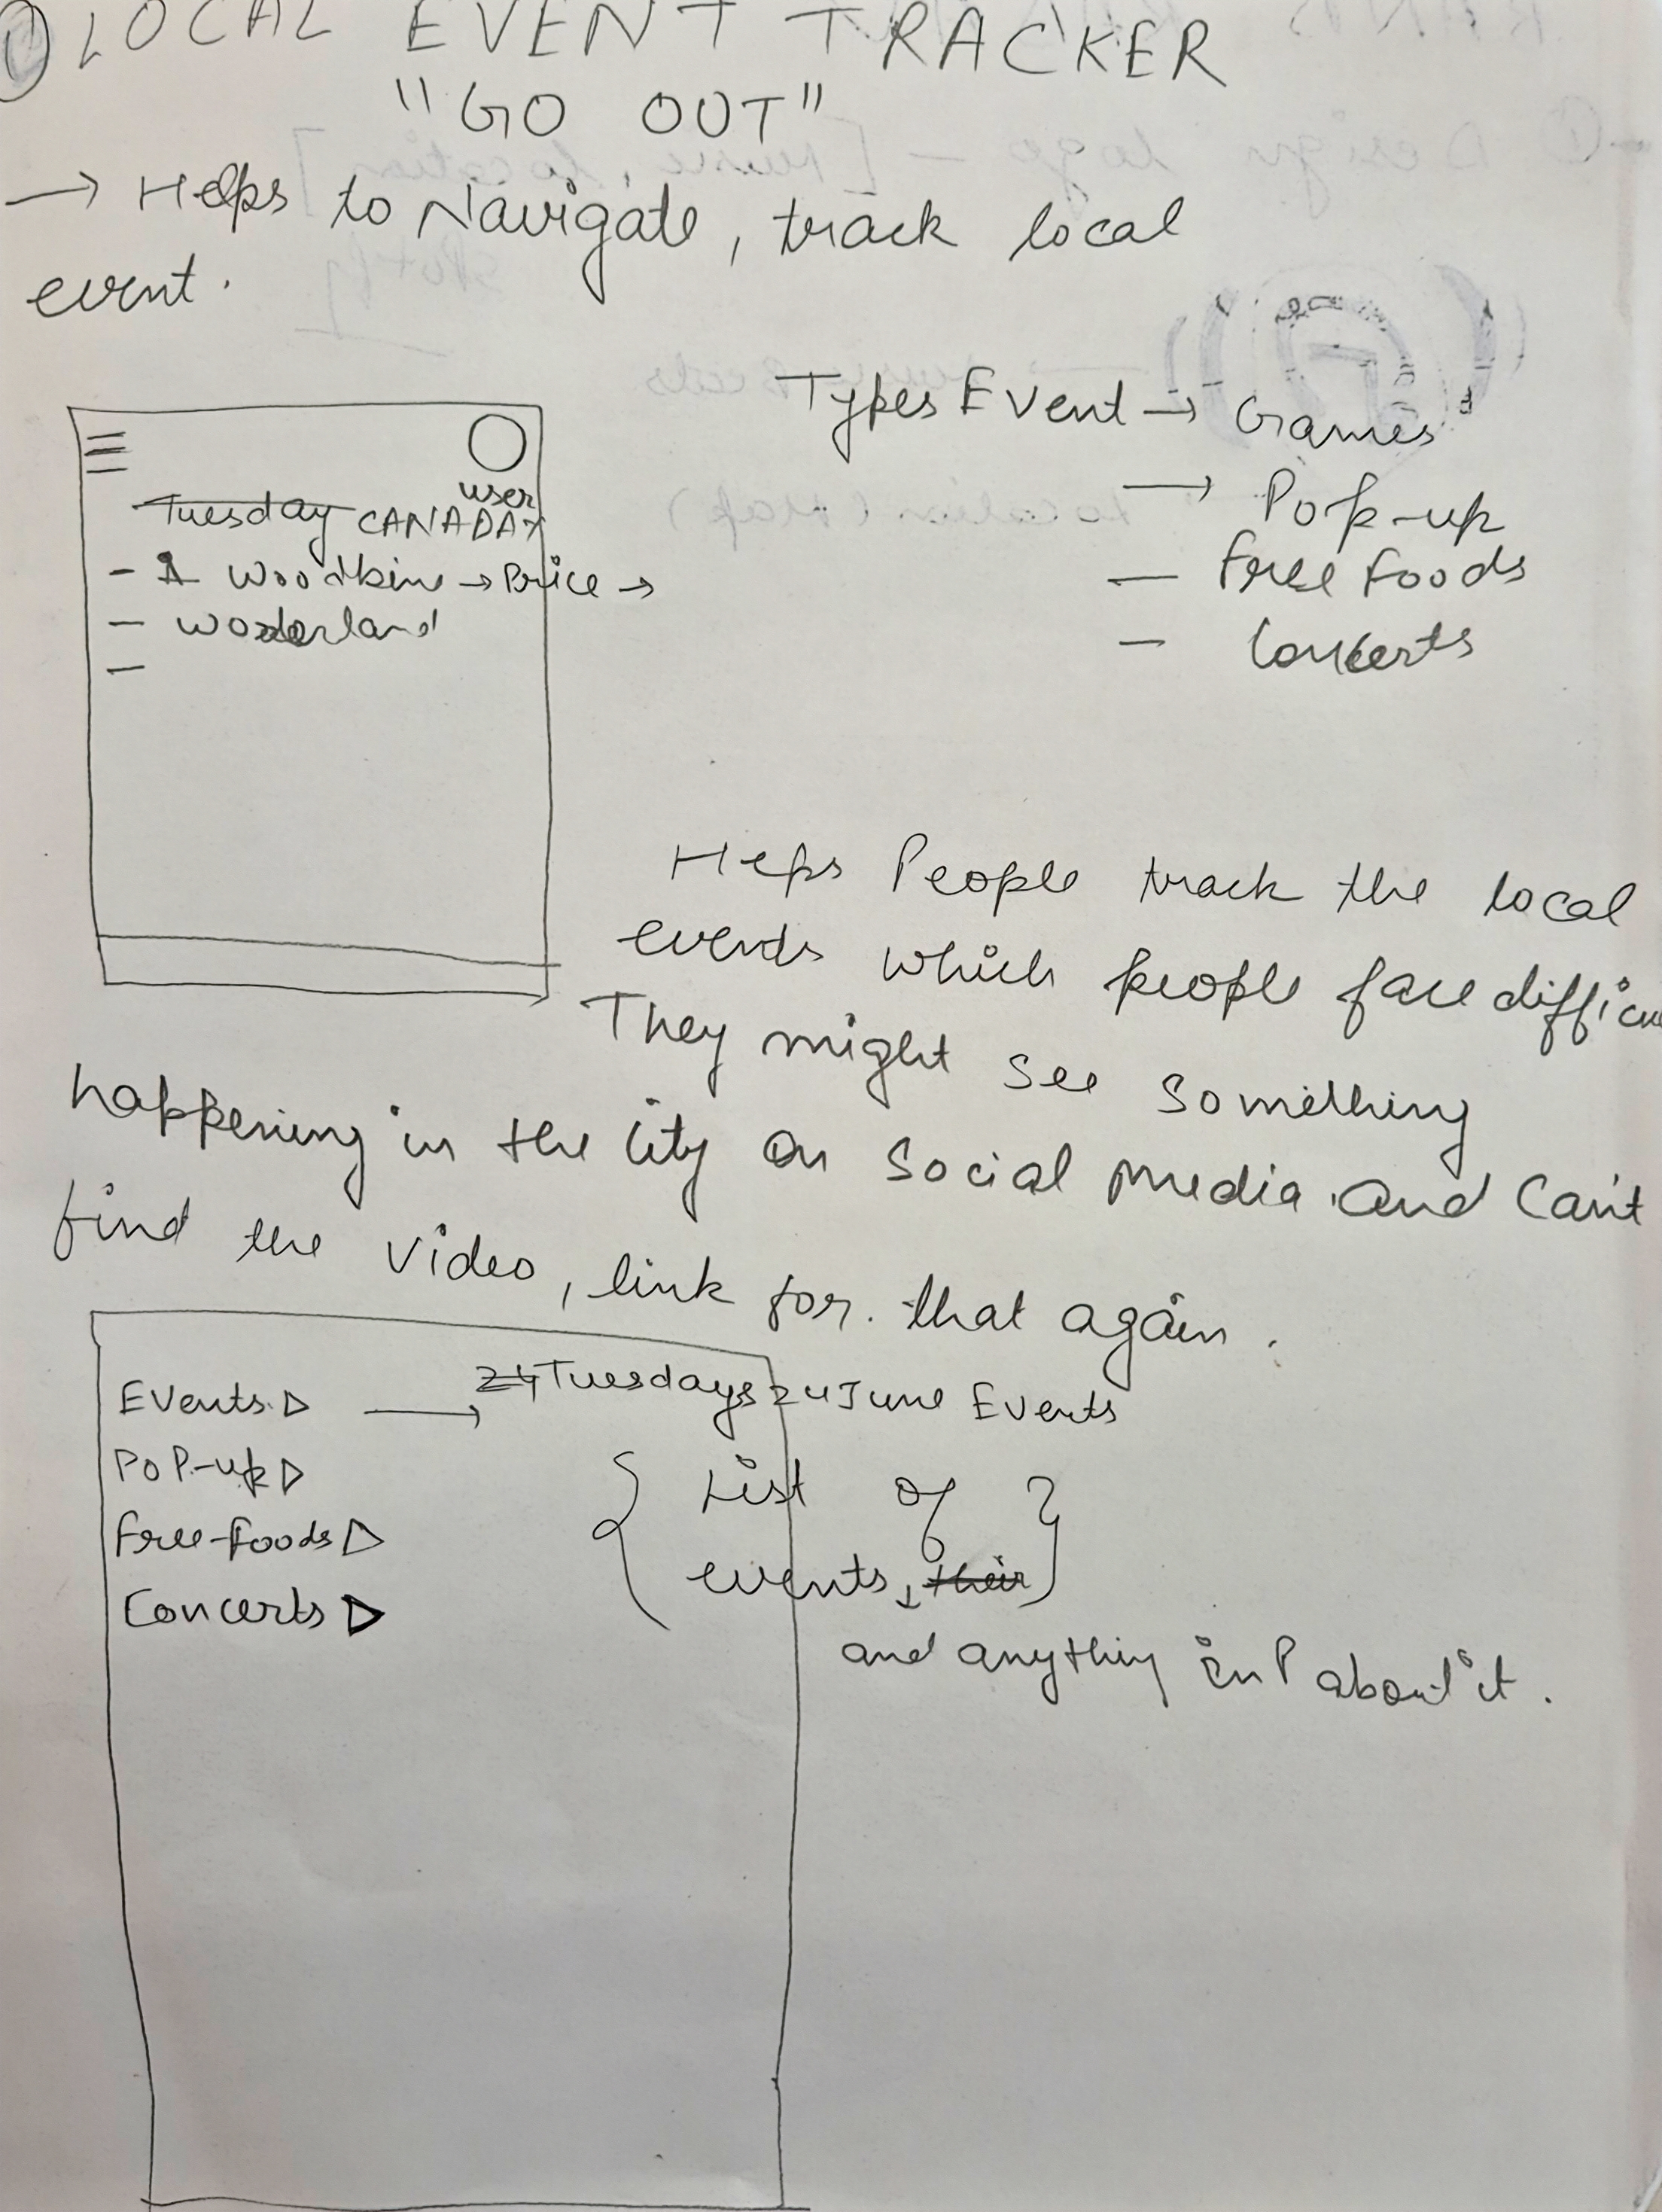 ① LOCAL EVENT TRACKER
"GO OUT"
→ Helps to Navigate, track local
event.
Types Event → Games
→ Pop-up
— free foods
— Concerts
user
Tuesday CANADA
- 1 Woodbine → Price →
- wonderland
-
Heps People track the local
events which people face difficu
They might see something
happening in the city on social media and can't
find the video, link for that again.
Events ▷ → 24 Tuesdays 24 June Events
Pop-up ▷
free-foods ▷
Concerts ▷
{ List of }
events, their
and anything inf about it.